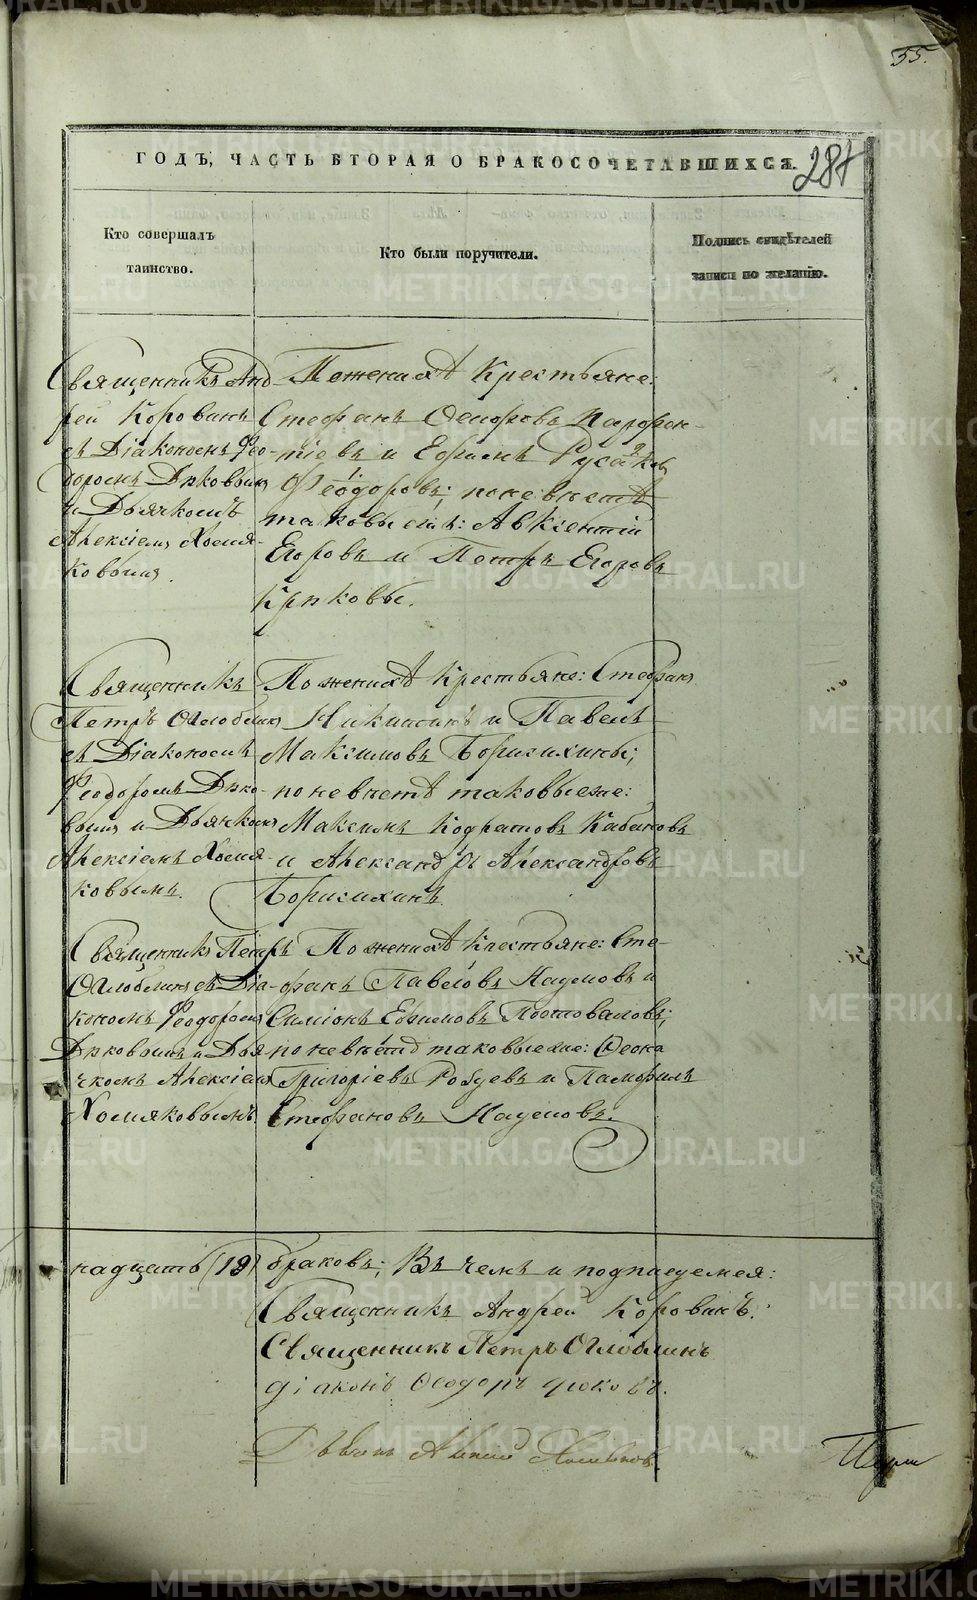 55.
ГОДЪ, ЧАСТЬ ВТОРАЯ О БРАКОСОЧЕТАВШИХСЯ.
287
Кто совершалъ
таинство.
Кто были поручители.
Подпись свидѣтелей
записи по желанію.
Священникъ Анд-
рей Коровинъ
съ Діакономъ Фео-
доромъ Дьковымъ
и Дьячкомъ
Алексіемъ Хомя-
ковымъ.
По женихѣ Крестьяне:
Стефанъ Феодоровъ Парфен-
тіевъ и Ефимъ Русаковъ
Феодоровъ; по невѣстѣ
таковые же: Авксентій
Егоровъ и Петръ Егоровъ
Крюковы.
Священникъ
Петръ Оглоблинъ
съ Діакономъ
Феодоромъ Дько-
вымъ и Дьячкомъ
Алексіемъ Хомя-
ковымъ.
По женихѣ Крестьяне: Стефанъ
Никитинъ и Павелъ
Максимовъ Боригихины;
по невѣстѣ таковые же:
Максимъ Кодратовъ Кабаковъ
и Александръ Александровъ
Боригихинъ.
Священникъ Петръ
Оглоблинъ съ Діа-
кономъ Феодоромъ
Дьковымъ и Дья-
чкомъ Алексіемъ
Хомяковымъ.
По женихѣ Крестьяне: Сте-
фанъ Павловъ Наумовъ и
Симіонъ Ефимовъ Постоваловъ;
по невѣстѣ таковые же: Феона
Григоріевъ и Памфилъ
Стефановъ Наумовъ.
надцать (19) браковъ; Въ чемъ и подписуемся:
Священникъ Андрей Коровинъ.
Священникъ Петръ Оглоблинъ
діаконъ Ѳеодоръ
Дьячекъ Алексій Хомяковъ.
METRIKI.GASO-URAL.RU